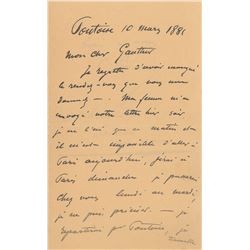 Pontoise 10 mars 1881
Mon cher Gauthier
Je regrette d'avoir manqué
le rendez-vous que vous me
donnez — Ma femme m'a
envoyé votre lettre hier soir
je ne l'ai que ce matin et
il m'est impossible d'aller à
Paris aujourd'hui, j'irai à
Paris dimanche je passerai
chez vous lundi ou mardi
je ne puis préciser — je
repartirai pour Pontoise, je